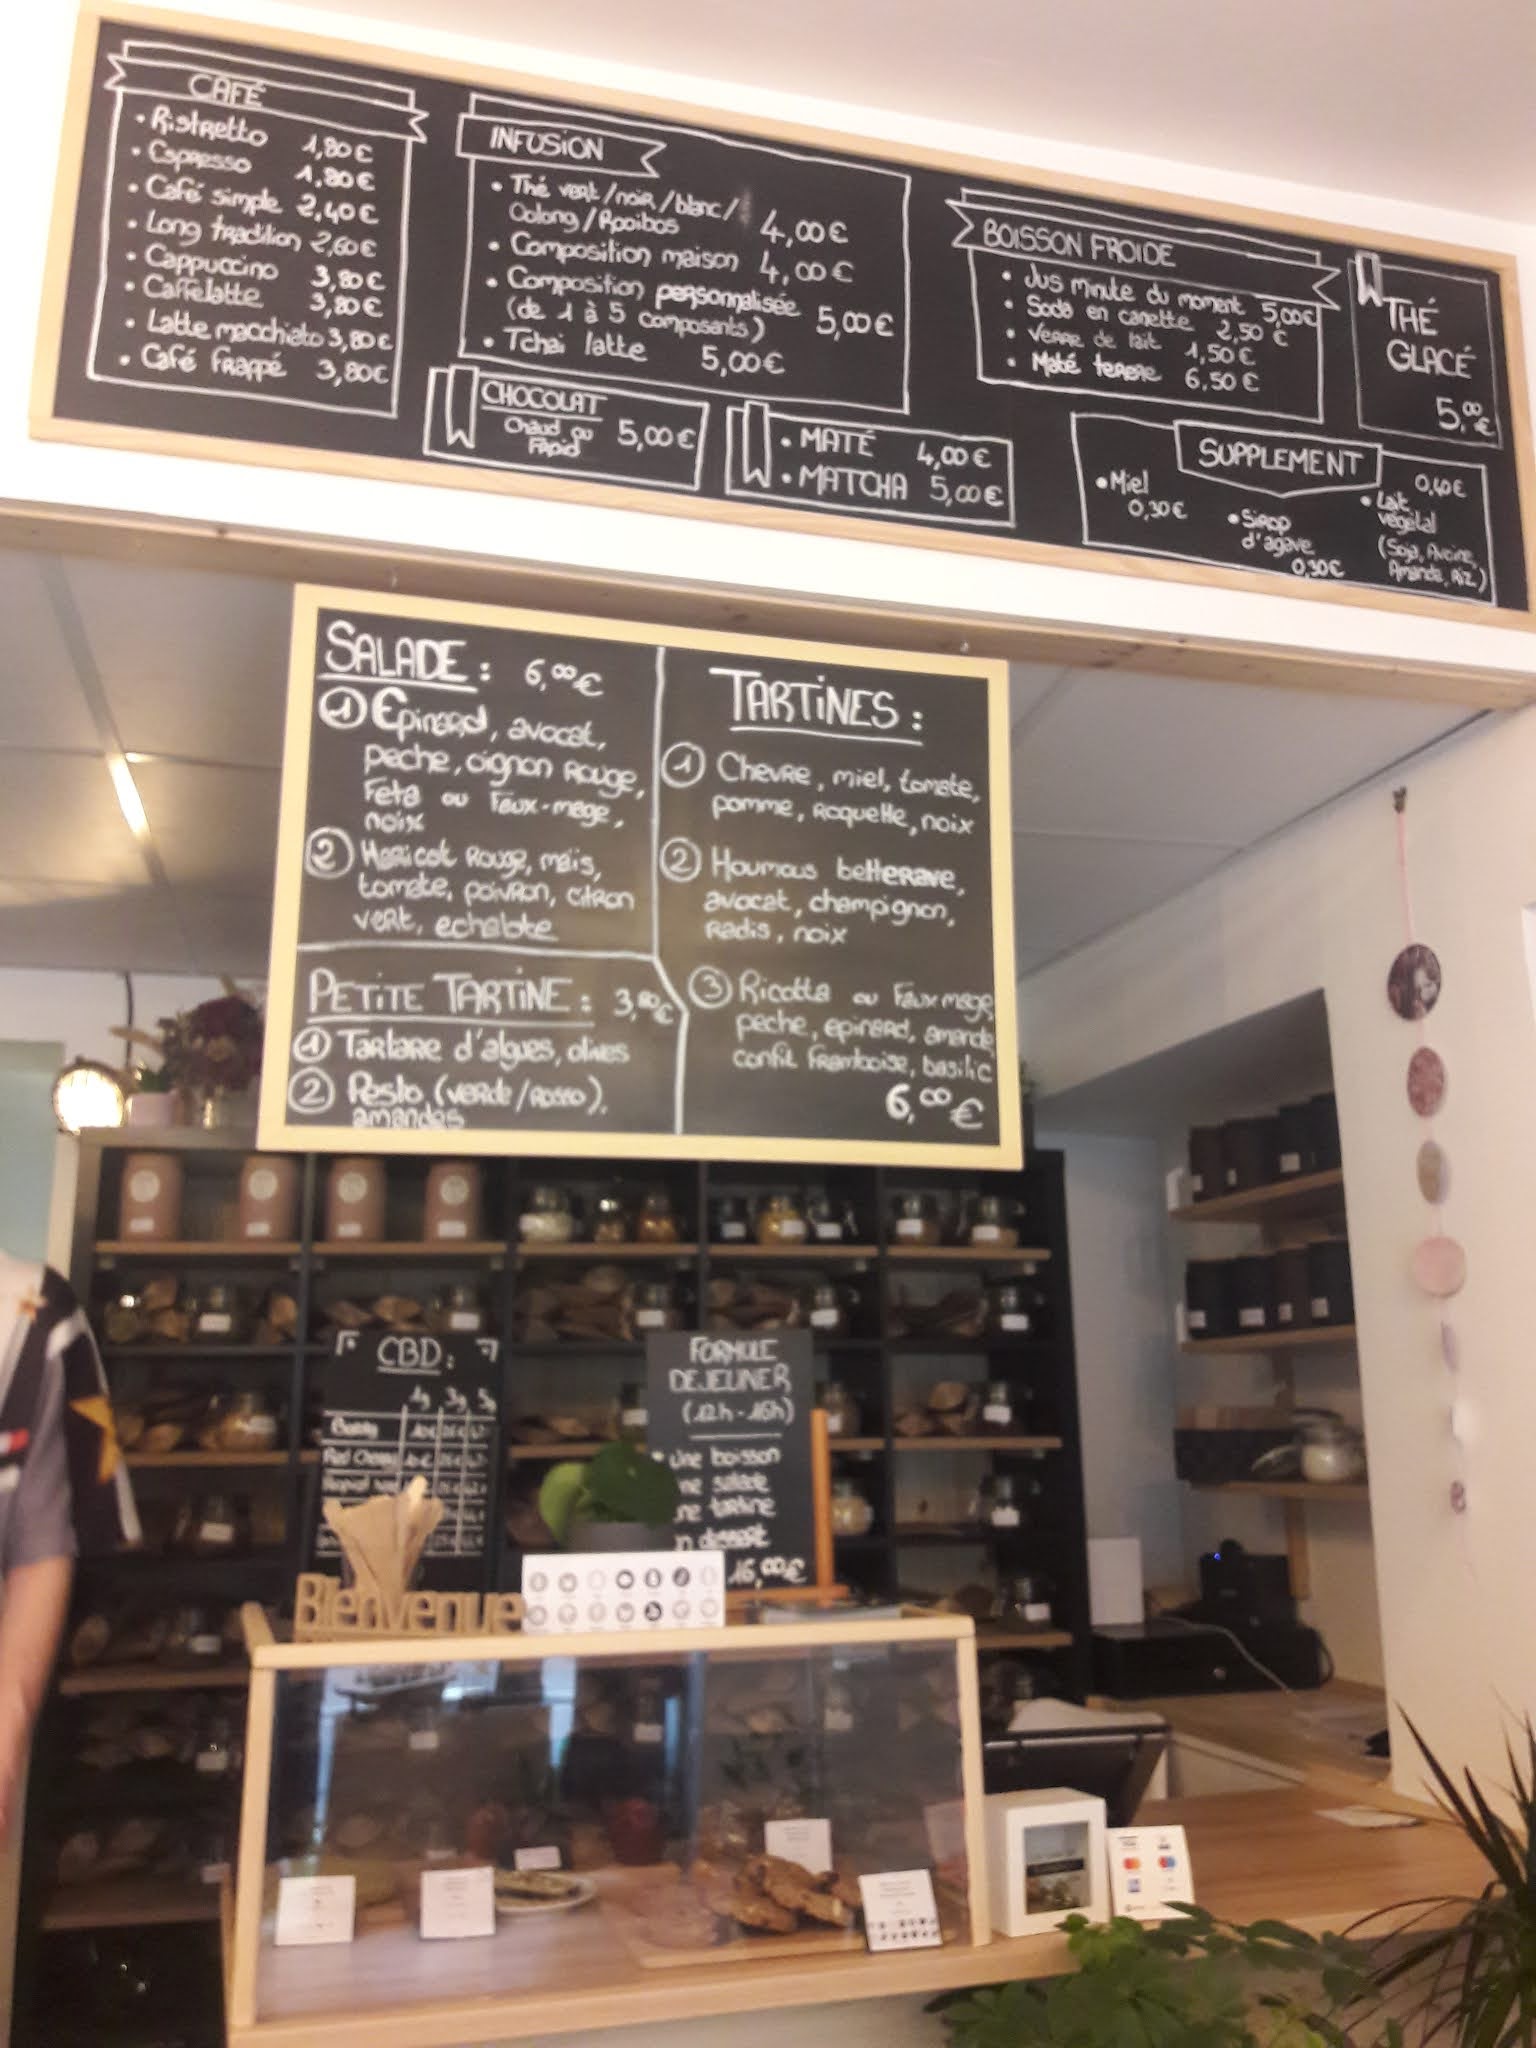 CAFÉ
• Ristretto 1,80€
• Espresso 1,80€
• Café simple 2,40€
• Long tradition 2,60€
• Cappuccino 3,80€
• Caffelatte 3,80€
• Latte macchiato 3,80€
• Café frappé 3,80€
INFUSION
• Thé vert/noir/blanc/
Oolong/Rooibos 4,00€
• Composition maison 4,00€
• Composition personnalisée
(de 1 à 5 composants) 5,00€
• Tchai latte 5,00€
CHOCOLAT
Chaud ou
Froid 5,00€
• MATÉ 4,00€
• MATCHA 5,00€
BOISSON FROIDE
• Jus minute du moment 5,00€
• Soda en canette 2,50 €
• Verre de lait 1,50€
• Maté terere 6,50€
THÉ
GLACÉ
5,00€
SUPPLEMENT
• Miel
0,30€
• Sirop
d'agave
0,30€
0,40€
• Lait
végétal
(Soja, Avoine,
Amande, Riz)
SALADE : 6,00€
1 Epinard, avocat,
peche, oignon rouge,
Feta ou Faux-mage,
noix
2 Haricot rouge, maïs,
tomate, poivron, citron
vert, echalote
PETITE TARTINE : 3,80€
1 Tartare d'algues, olives
2 Pesto (verde/rosso),
amandes
TARTINES :
1 Chevre, miel, tomate,
pomme, roquette, noix
2 Houmous betterave,
avocat, champignon,
radis, noix
3 Ricotta ou Faux mage,
peche, epinard, amande
confit framboise, basilic
6,00€
CBD :
1g 3g 5g
FORMULE
DEJEUNER
(12h-16h)
une boisson
ne salade
ne tartine
n dessert
16,00€
Bienvenue